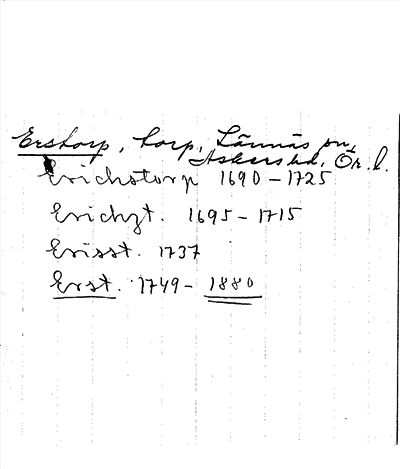 Erstorp, torp, Lännäs sn,
Askers hd, Ör. l.
Erichstorp 1690 – 1725
Erichzt. 1695 – 1715
Erisst. 1737
Erst. 1749 – 1880